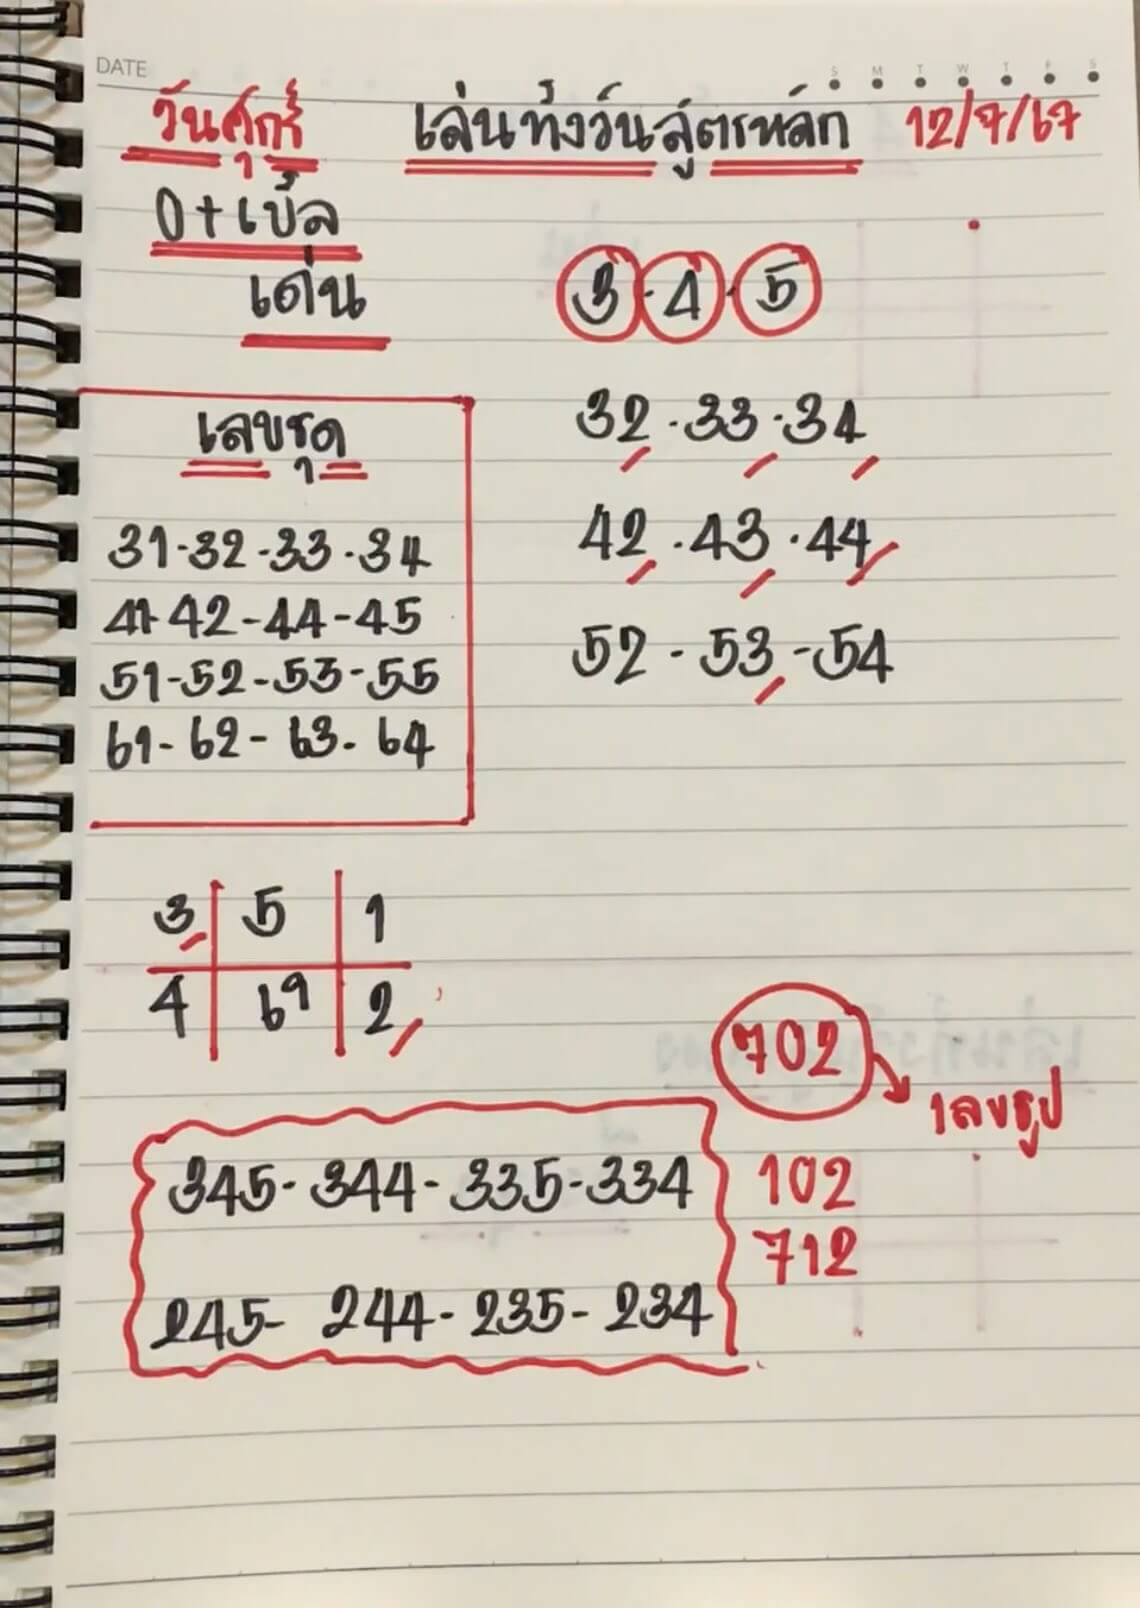 DATE
S M T W T F S
วันศุกร์ เล่นทั้งวันสูตรหลัก 12/7/67
0+เบิ้ล
เด่น 3 · 4 · 5
เลขชุด
31-32-33-34
41-42-44-45
51-52-53-55
61-62-63-64
32 · 33 · 34
42 · 43 · 44
52 - 53 - 54
3 5 1
4 69 2
702
เลขธูป
102
712
345-344-335-334
245-244-235-234